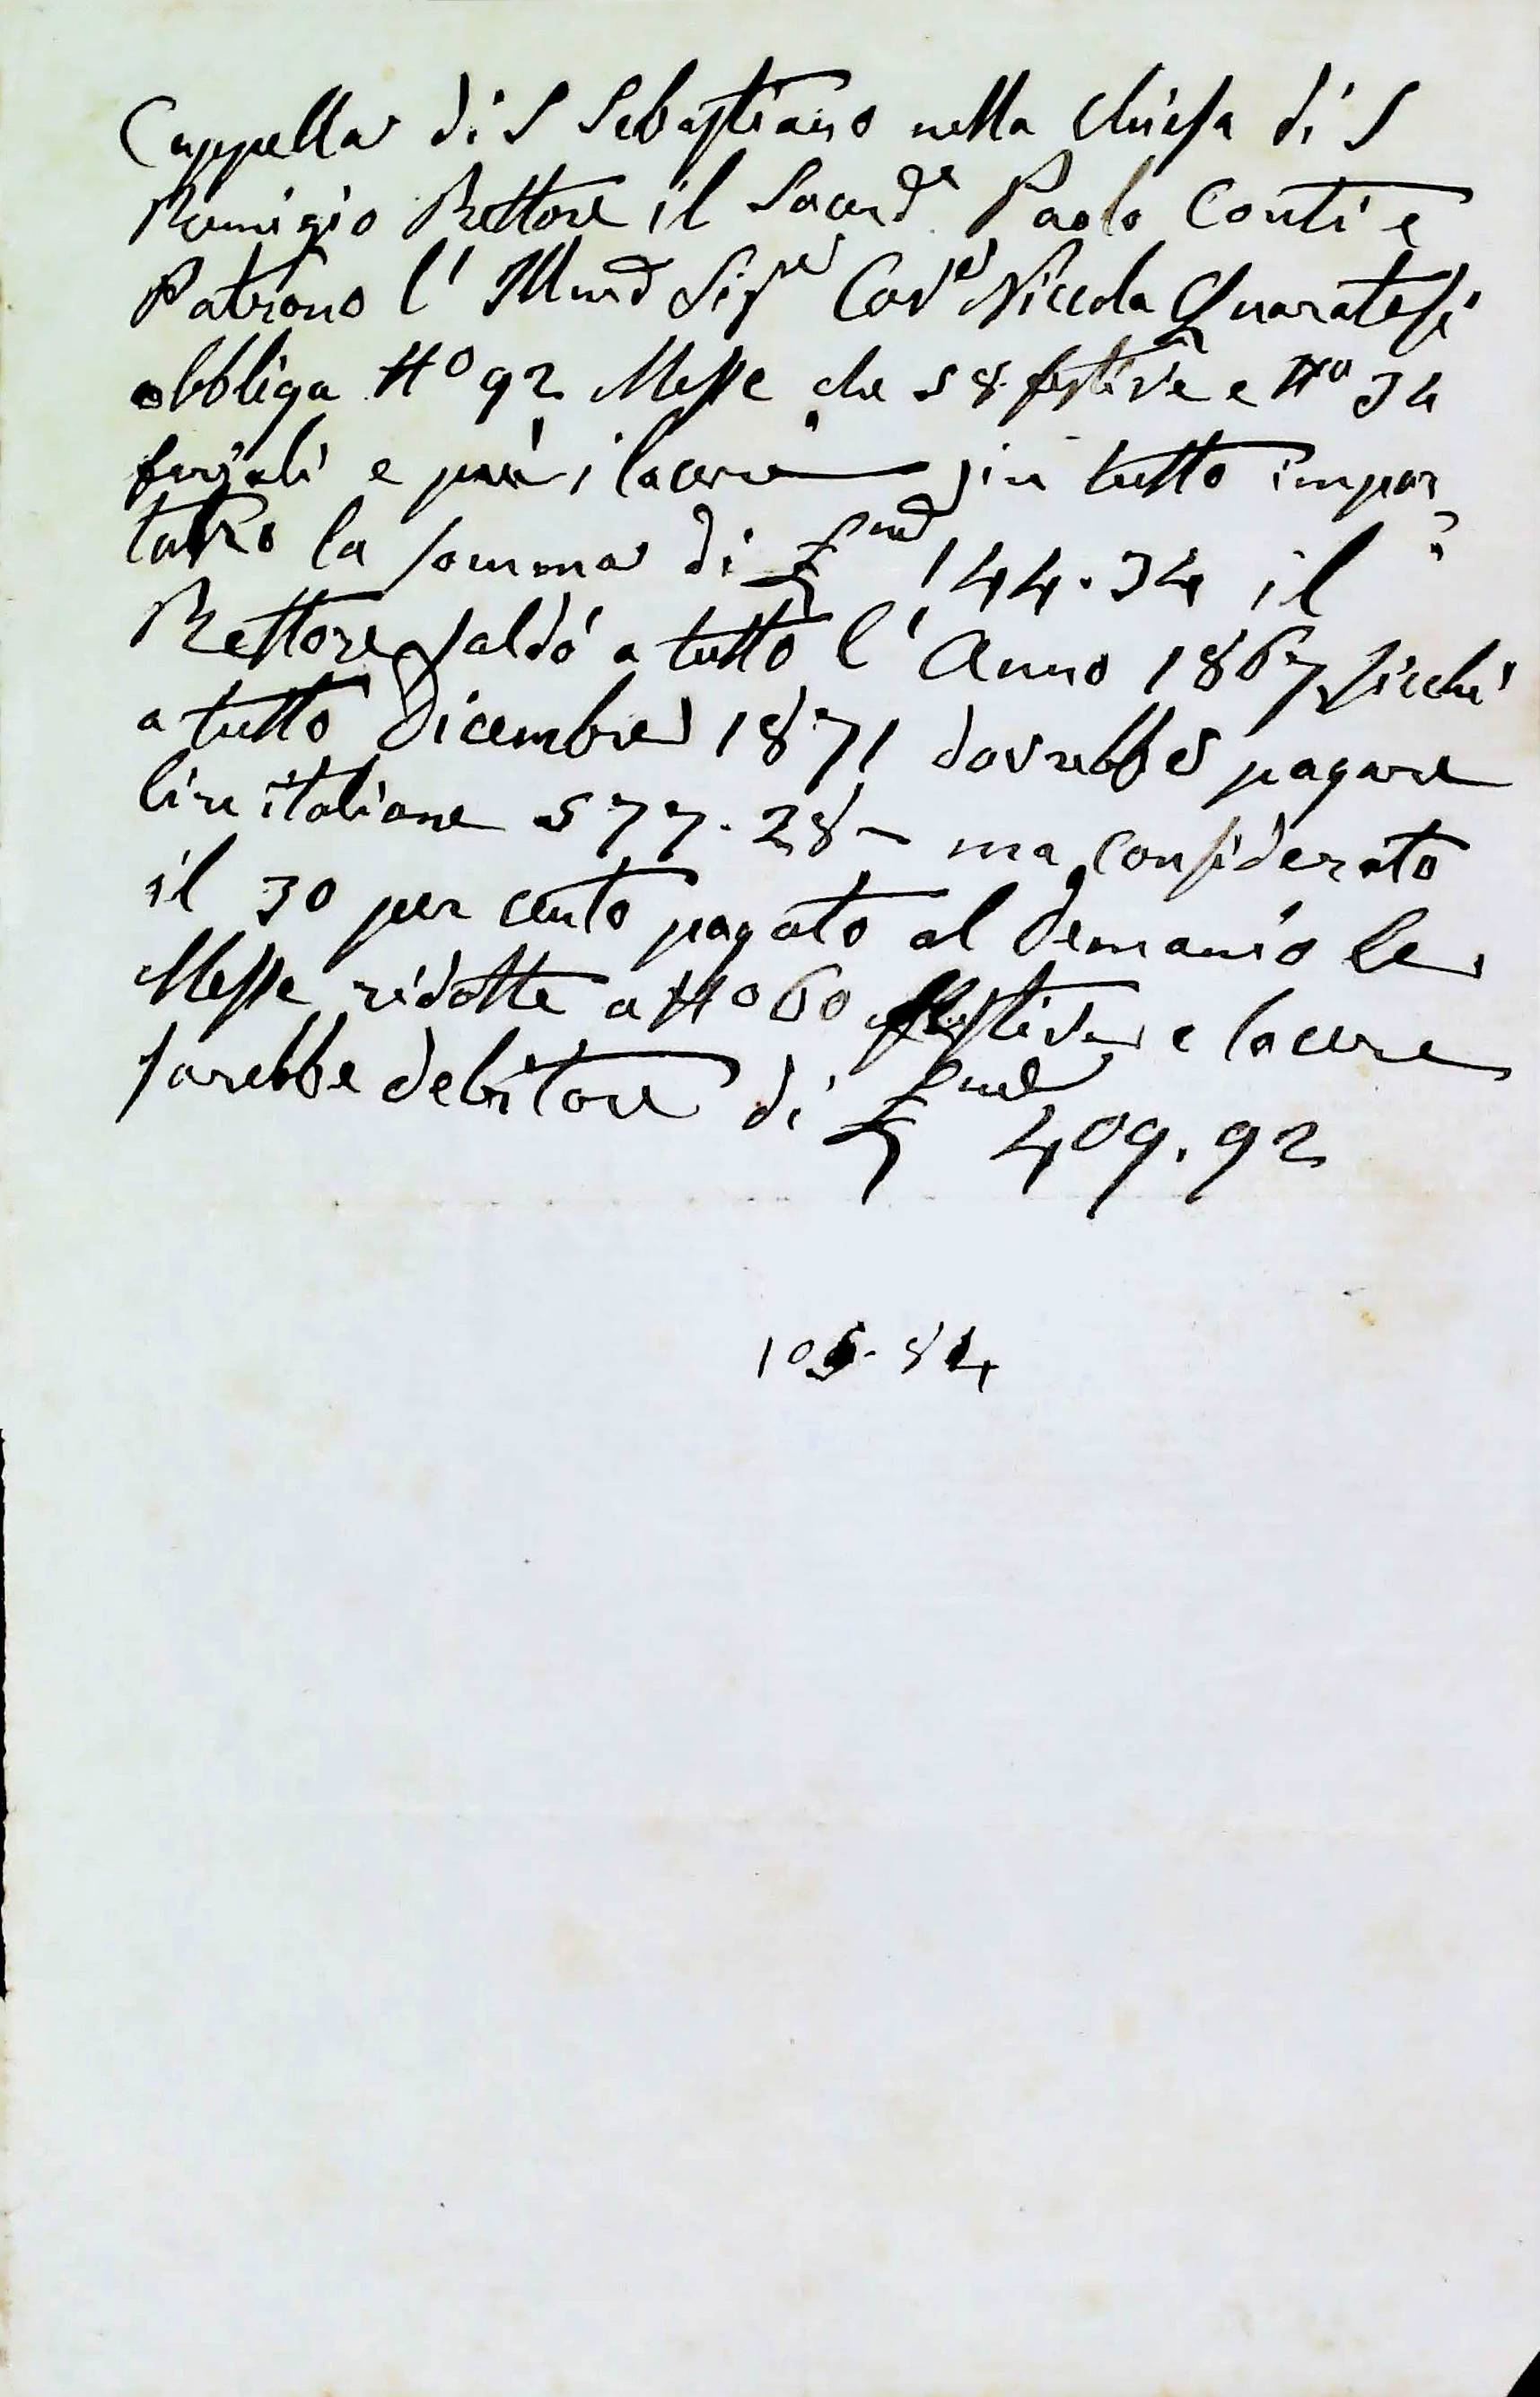 Cappella di S Sebastiano nella Chiesa di S
Remigio Rettore il Sacerd.e Paolo Conti e
Patrono l' Illmo Sigre Cave Niccola Quaratesi
obbliga No 92 Messe che 58 festive e No 34
feriali e più la cera in tutto impor=
tano la somma di £ 144.34 il
Rettore saldò a tutto l' Anno 1867 sicchè
a tutto Dicembre 1871 dovrebbe pagare
lire italiane 577.28 - ma considerato
il 30 per cento pagato al Demanio le
Messe ridotte a No 60 festive e la cera
sarebbe debitore di £ 409.92
105.84